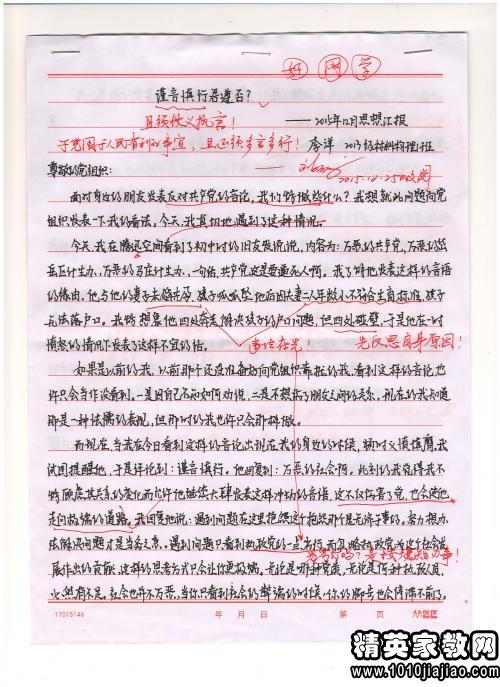 好同学
谨言慎行君遵否?
且须仗义执言!
——2015年12月思想汇报
于党国于人民有利的事宜,且还须多言多行! 李洋 2013级材料物理1班
2015.12.25
尊敬的党组织:
面对身边的朋友发表反对共产党的言论,我们能做些什么?我想就此问题向党
组织发表一下我的看法,今天,我真切地遇到了这种情况。
今天,我在腾讯空间看到了初中时的旧友发说说,内容为:万恶的共产党,万恶的
计生办,万恶的 计生办,一句话,共产党这是要逼死人啊。我了解他发表这样的言语
的缘由,他与他的妻子未婚先孕,孩子呱呱坠地后因夫妻二人年龄小不符合生育标准,孩子
无法落户口。我能想象他四处奔走解决孩子的户口问题,但四处碰壁,于是他在一时
愤怒的情况下发表了这样不宜的话。 责任在先! 先反思自身原因!
如果是以前的我,以前那个还没准备好向党组织靠拢的我,看到这样的言论也
许只会当作没看到,一是因自己不知如何劝说,二是不想伤了朋友之间的关系,现在的我知道
那是一种怯懦的表现,但那时的我也许只会那样做。
而现在,当我在今日看到这样的言论出现在我的身边的时候,顿时义愤填膺,我
试图提醒他,于是评论到:谨言慎行。他回复到:万恶的社会啊。此刻的我觉得我不
能顾虑其关系的恶化而允许他继续大肆发表这样冲动的言语,这不仅伤害了党,也会使他
走向极端的道路。我回复他说:遇到问题在这里抱怨这个抱怨那个是无济于事的。努力想办
法解决问题才是当务之急。遇到问题只看到执政党的一点劣行,而忽略执政党为这个社会发
劣行吗?是按规矩办事!
展作出的贡献,这样的思考方式只会让你更极端。无论是哪种党派,无论是何种执政人员,
必然有不足,社会也并不万恶,当你只看到社会的弊端的时候,你的脚步也会停滞不前了。
17015146 年 月 日 第 页
精英家教网
www.1010jiajiao.com